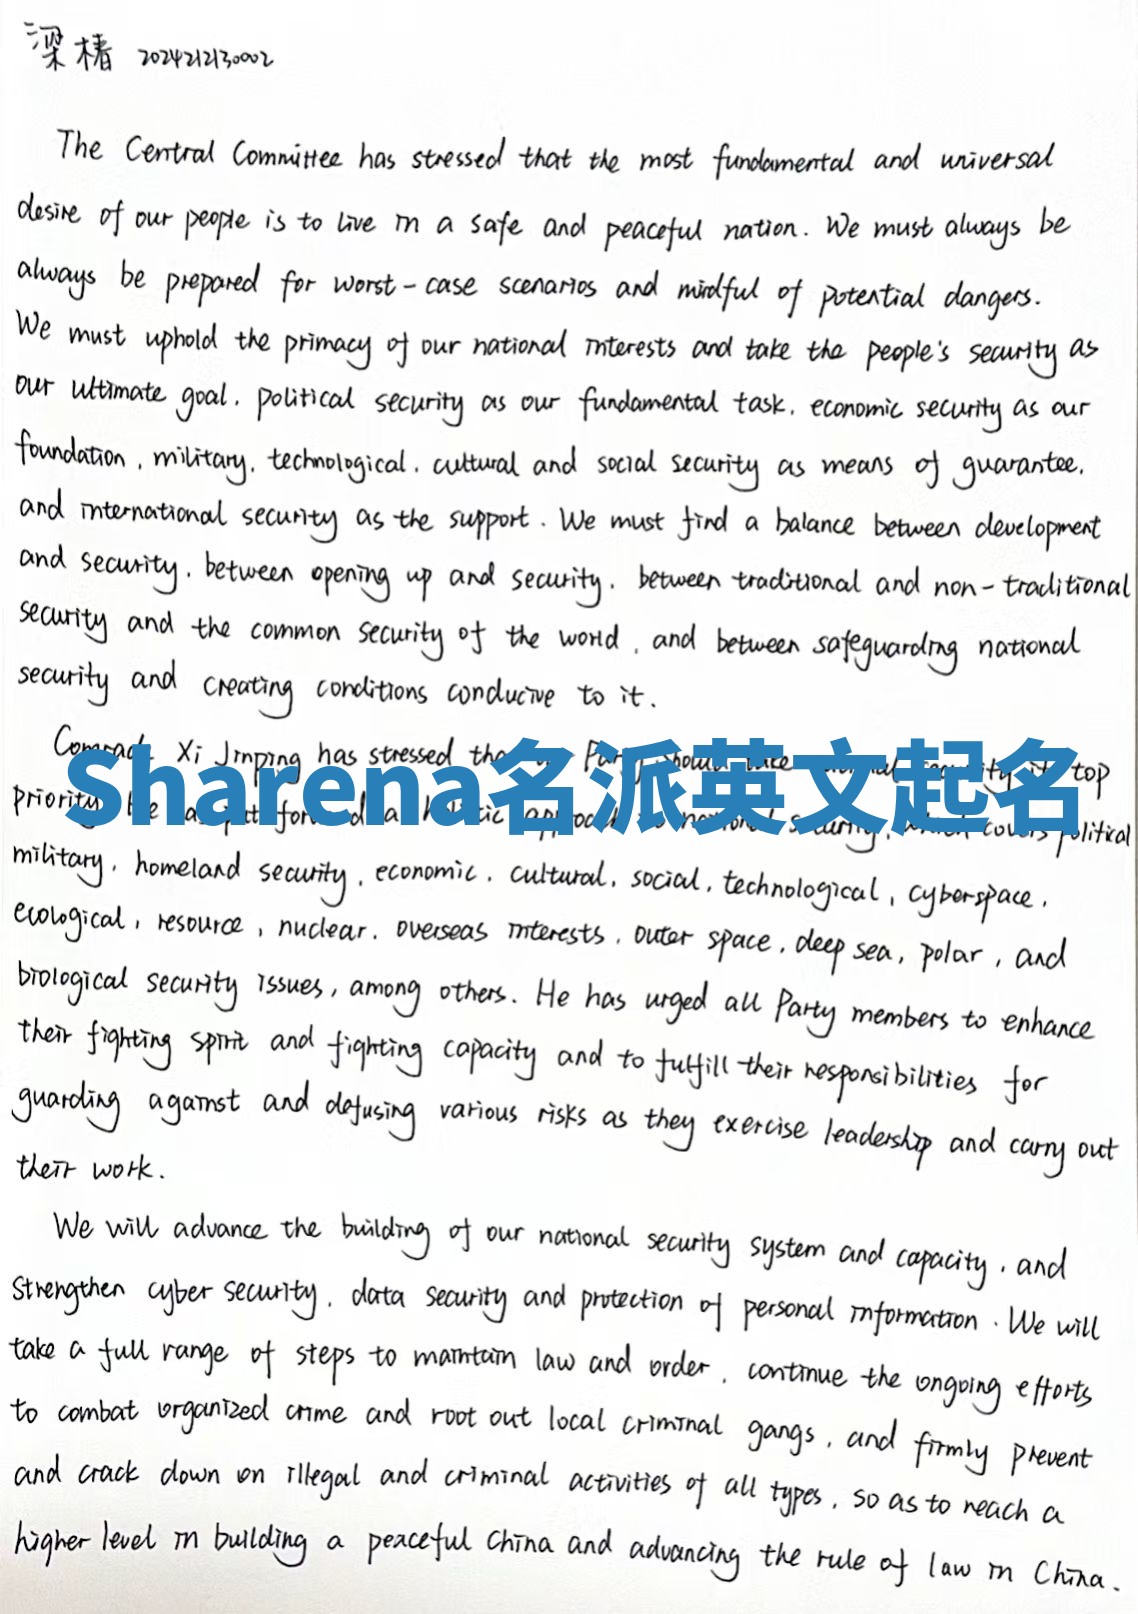 梁椿 2024212130002
The Central Committee has stressed that the most fundamental and universal
desire of our people is to live in a safe and peaceful nation. We must always be
always be prepared for worst-case scenarios and mindful of potential dangers.
We must uphold the primacy of our national interests and take the people's security as
our ultimate goal, political security as our fundamental task, economic security as our
foundation, military, technological, cultural and social security as means of guarantee,
and international security as the support. We must find a balance between development
and security, between opening up and security, between traditional and non-traditional
security and the common security of the world, and between safeguarding national
security and creating conditions conducive to it.
Xi Jinping has stressed Party top
Sharena名派英文起名
priority political
military, homeland security, economic, cultural, social, technological, cyberspace,
ecological, resource, nuclear, overseas interests, outer space, deep sea, polar, and
biological security issues, among others. He has urged all Party members to enhance
their fighting spirit and fighting capacity and to fulfill their responsibilities for
guarding against and defusing various risks as they exercise leadership and carry out
their work.
We will advance the building of our national security system and capacity, and
strengthen cyber security, data security and protection of personal information. We will
take a full range of steps to maintain law and order, continue the ongoing efforts
to combat organized crime and root out local criminal gangs, and firmly prevent
and crack down on illegal and criminal activities of all types, so as to reach a
higher level in building a peaceful China and advancing the rule of law in China.